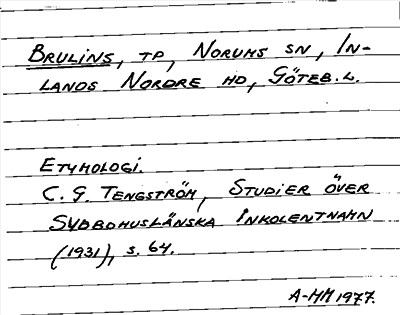 BRULINS, TP, NORUMS SN, IN-
LANDS NORDRE HD, GÖTEB. L.
ETYMOLOGI.
C. G. TENGSTRÖM, STUDIER ÖVER
SYDBOHUSLÄNSKA INKOLENTNAMN
(1931), S. 64.
A-HM 1977.